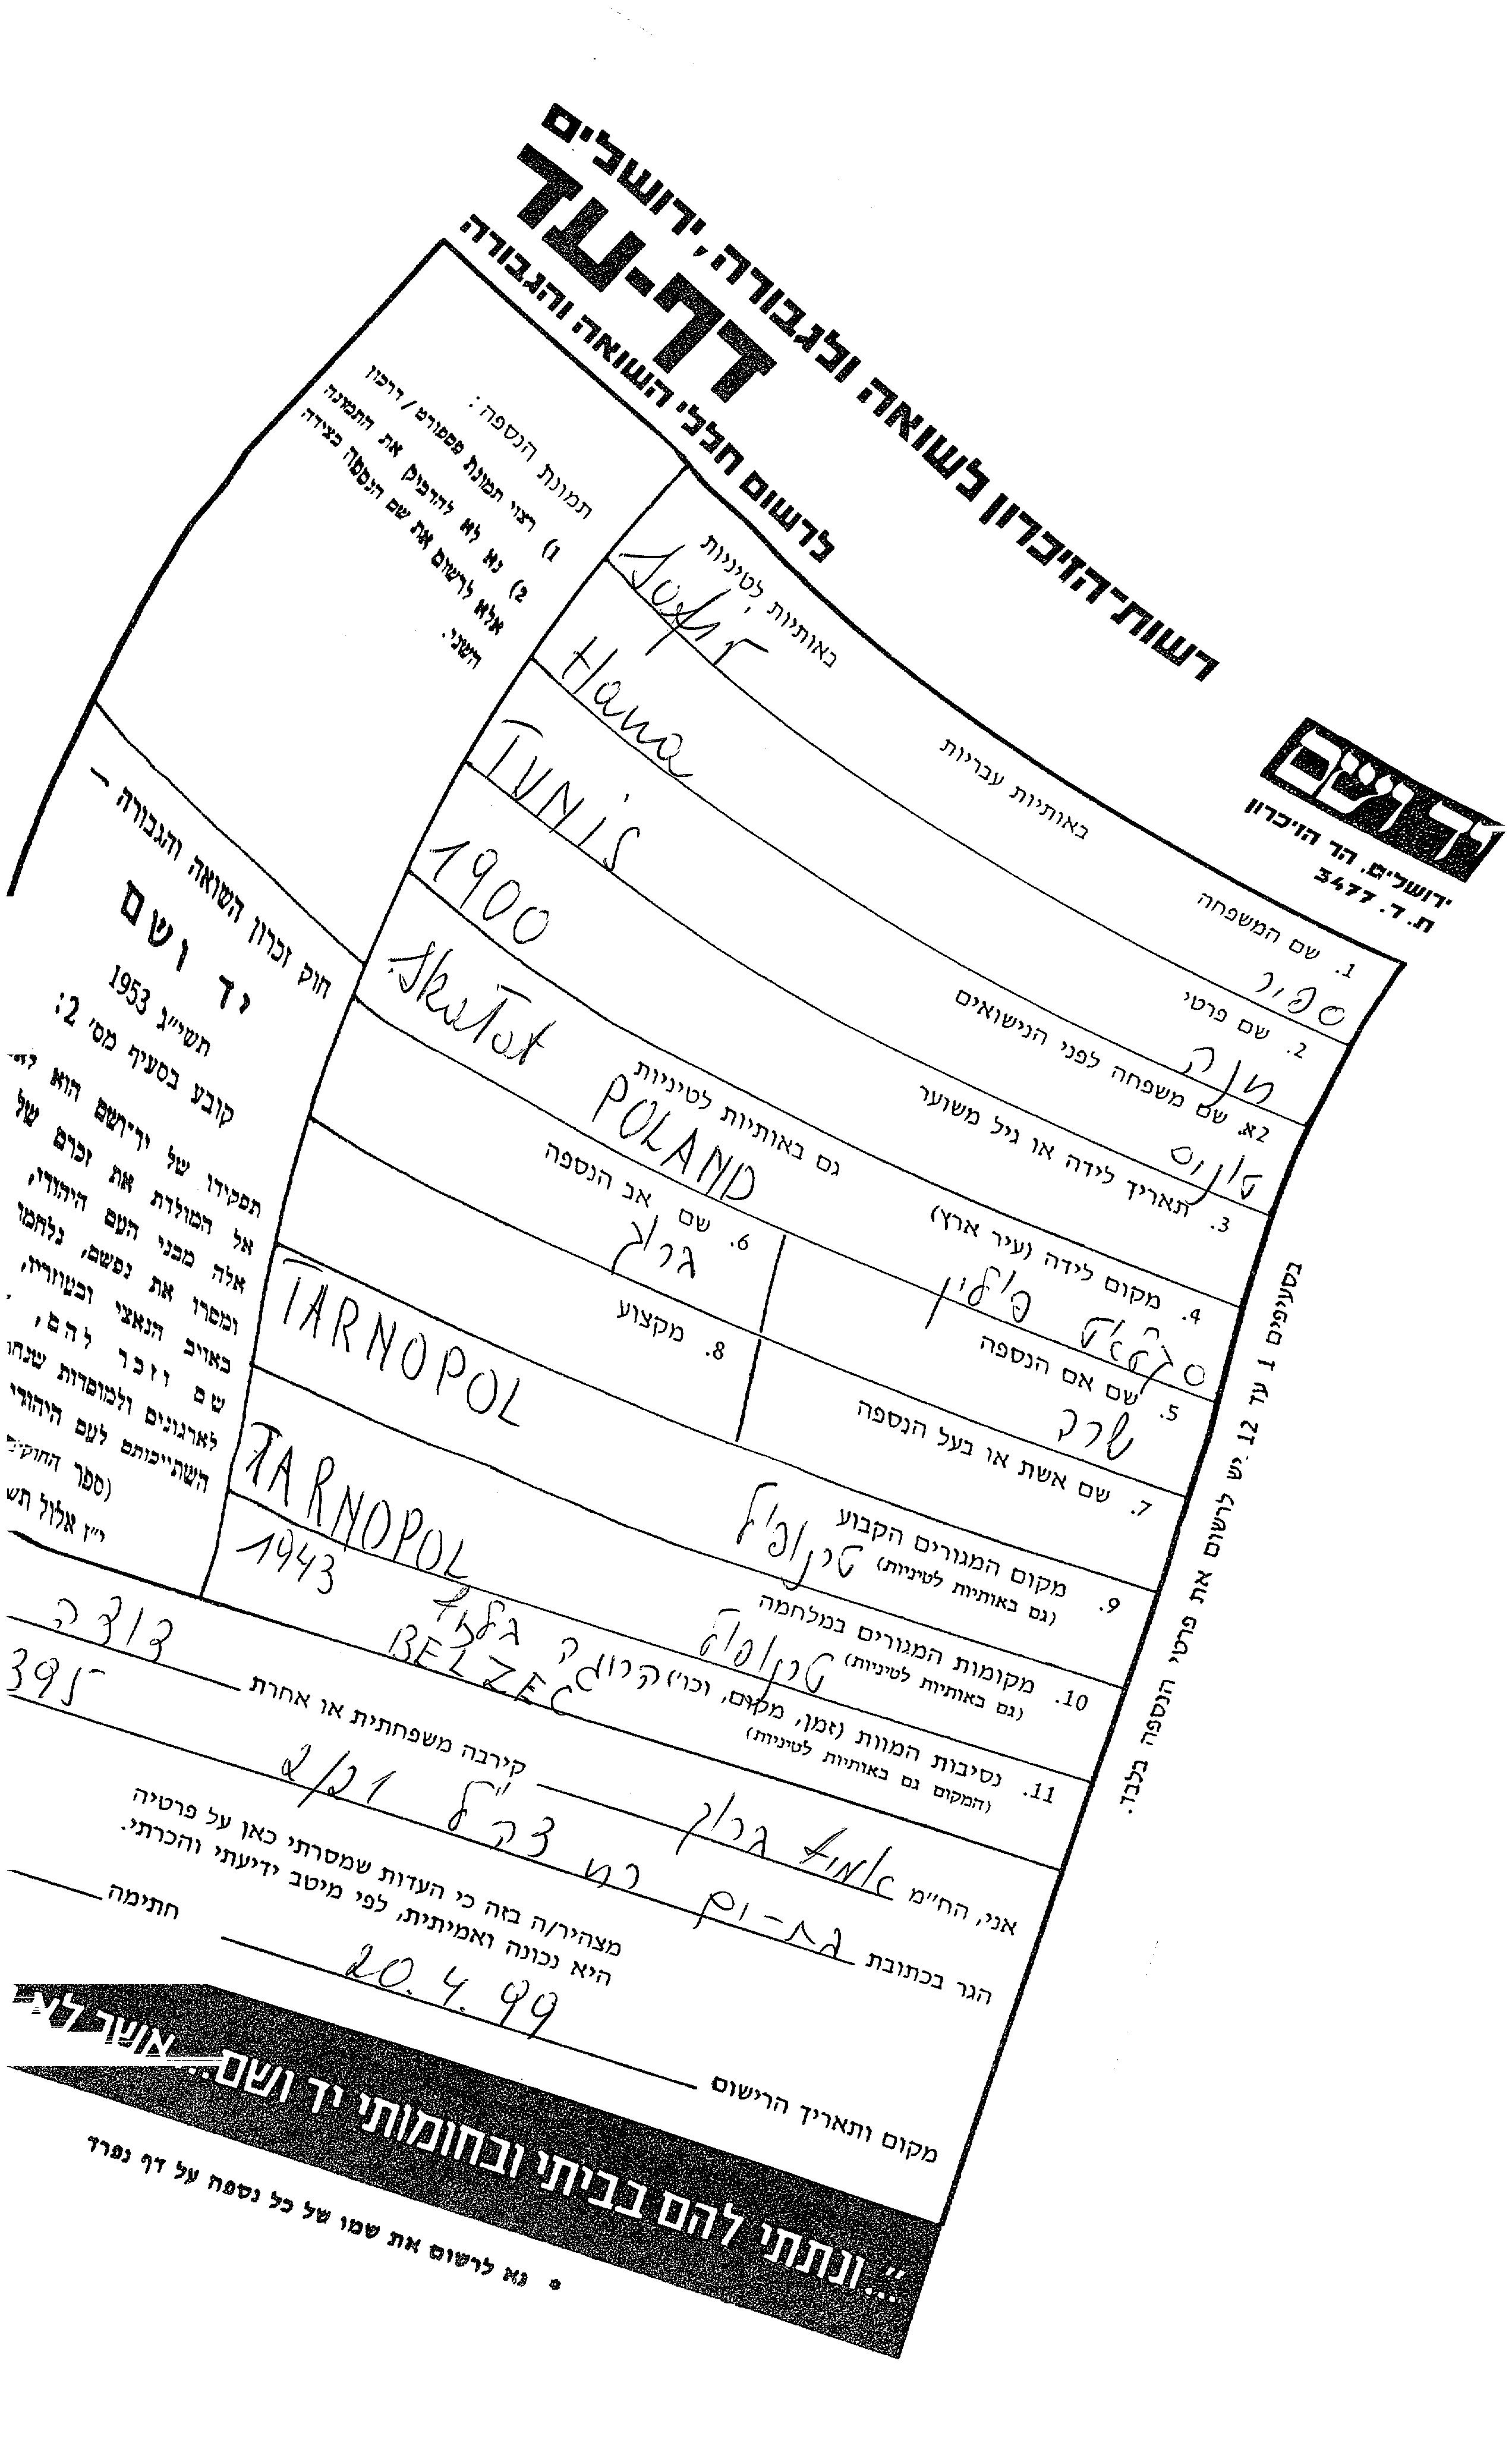 רשות-הזיכרון לשואה ולגבורה, ירושלים
דף-עד
לרשום חללי השואה והגבורה
יד ושם
ירושלים, הר הזיכרון
ת. ד. 3477
תמונת הנספה:
1) רצוי תמונת פספורט/דרכון
2) נא לא להדביק את התמונה
אלא לרשום את שם הנספה בצידה
השני.
באותיות עבריות
באותיות לטיניות
1. שם המשפחה
ספיר
2. שם פרטי
חנה
Hana
2א. שם משפחה לפני הנישואים
טוניס
TUNiS
3. תאריך לידה או גיל משוער
1900
4. מקום לידה (עיר ארץ)
גם באותיות לטיניות
פולין
Skatat POLAND
5. שם אם הנספה
שרה
6. שם אב הנספה
ברוך
7. שם אשת או בעל הנספה
8. מקצוע
9. מקום המגורים הקבוע
(גם באותיות לטיניות)
טרנופול
TARNOPOL
10. מקומות המגורים במלחמה
(גם באותיות לטיניות)
טרנופול
TARNOPOL
11. נסיבות המוות (זמן, מקום, וכו')
(המקום גם באותיות לטיניות)
הרוגה
BELZEC
1943
בסעיפים 1 עד 12 יש לרשום את פרטי הנספה בלבד.
חוק זכרון השואה והגבורה –
יד ושם
תשי״ג 1953
קובע בסעיף מס׳ 2:
תפקידו של יד-ושם הוא
אל המולדת את זכרם של
אלה מבני העם היהודי,
ומסרו את נפשם, נלחמו
באויב הנאצי ובעוזריו,
שם וזכר להם,
לארגונים ולמוסדות
השתייכותם לעם היהודי
(ספר
י״ז אלול
אני, הח״מ ברוך
קירבה משפחתית או אחרת דודה
הגר בכתובת בת-ים רח צה״ל 2/21 395
מצהיר/ה בזה כי העדות שמסרתי כאן על פרטיה
היא נכונה ואמיתית, לפי מיטב ידיעתי והכרתי.
מקום ותאריך הרישום 20.4.99
חתימה
״...ונתתי להם בביתי ובחומותי יד ושם... אשר לא
* נא לרשום את שמו של כל נספה על דף נפרד